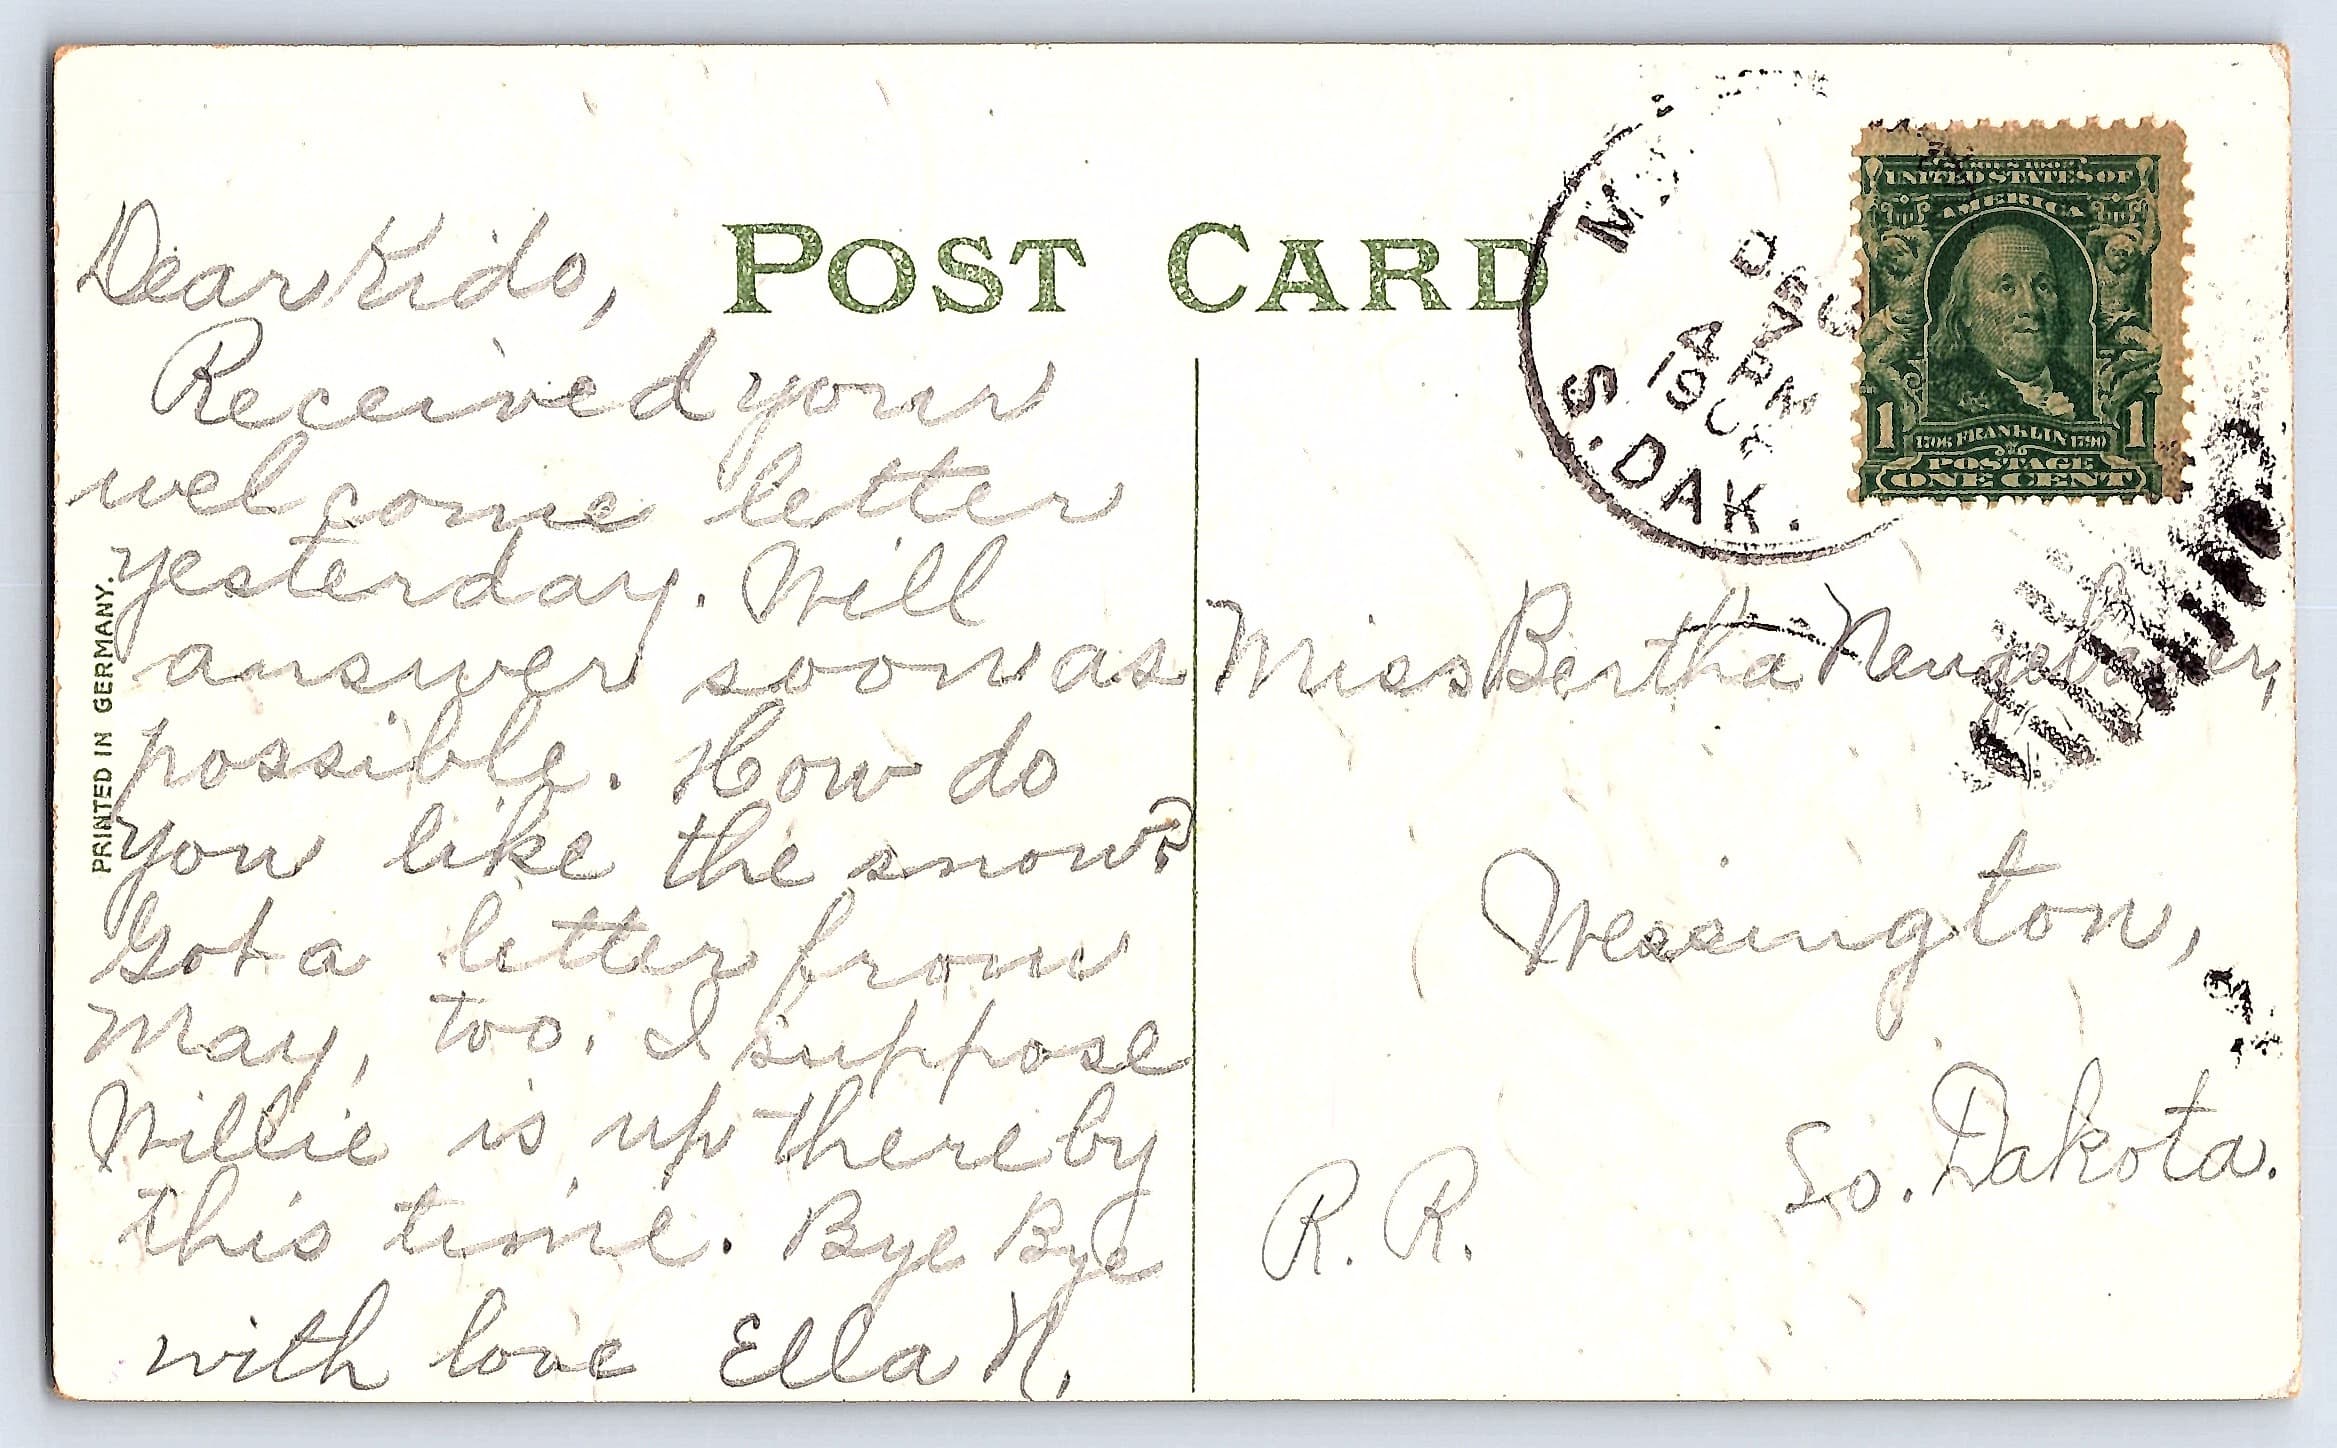 POST CARD
PRINTED IN GERMANY.
Dear Kido,
Received your
welcome letter
yesterday. Will
answer soon as
possible. How do
you like the snow?
Got a letter from
May, too. I suppose
Willie is up there by
this time. Bye Bye
with love Ella N.
DEC
7
4 PM
190
S. DAK.
SERIES 1902
UNITED STATES OF
AMERICA
1 1
1706 FRANKLIN 1790
POSTAGE
ONE CENT
Miss Bertha Neugebauer,
Wessington,
So. Dakota.
R. R.